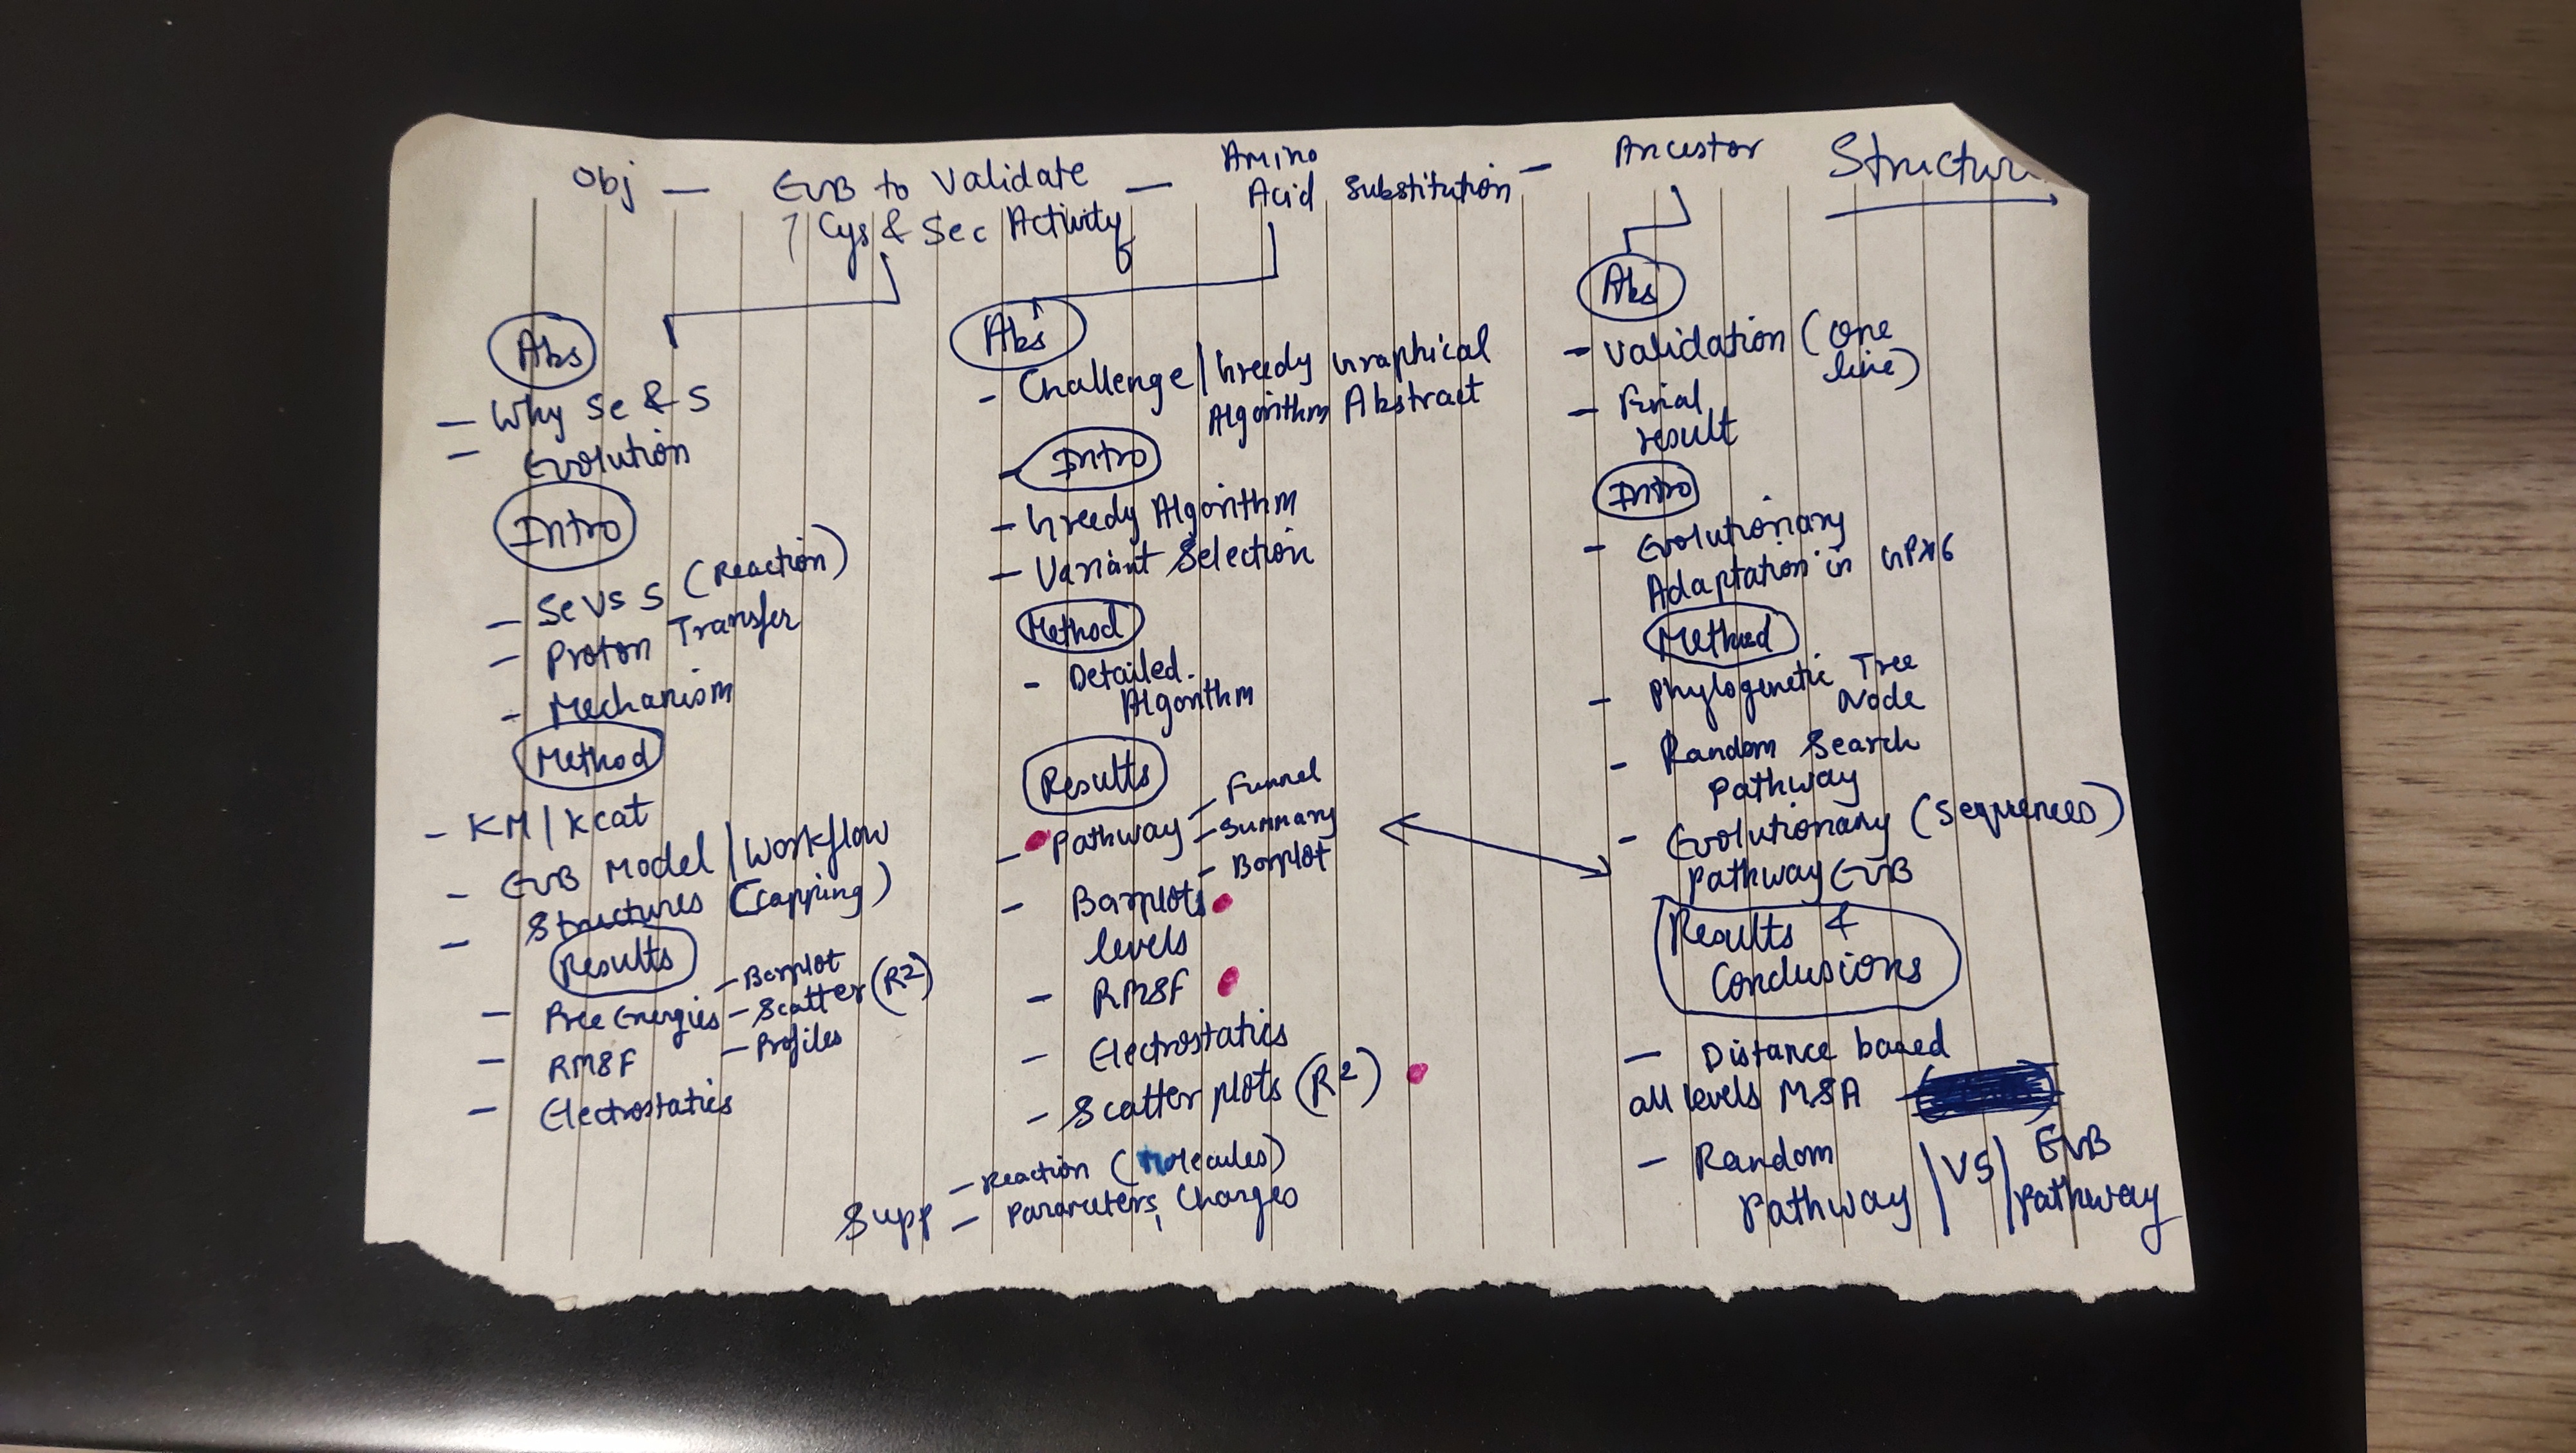 Obj — EVB to Validate — Amino Acid Substitution — Ancestor Structure
↑ Cys & Sec Activity
Abs
— Why Se & S
— Evolution
Intro
— Se vs S (Reaction)
— Proton Transfer
— Mechanism
Method
— KM / Kcat
— EVB Model / Workflow
— Structures (Capping)
Results
— Free Energies — Barplot
— Scatter (R²)
— Profiles
— RMSF
— Electrostatics
Abs
— Challenge / Greedy Graphical
Algorithm Abstract
Intro
— Greedy Algorithm
— Variant Selection
Method
— Detailed
Algorithm
Results
— Pathway — Funnel
— Summary
— Barplot
— Barplots
levels
— RMSF
— Electrostatics
— Scatter plots (R²)
Supp — Reaction (Molecules)
— Parameters, Charges
Abs
— Validation (One
line)
— Final
result
Intro
— Evolutionary
Adaptation in GPX6
Method
— Phylogenetic Tree
Node
— Random Search
Pathway
— Evolutionary (Sequences)
Pathway EVB
Results &
Conclusions
— Distance based
all levels MSA
— Random
Pathway | VS | EVB
Pathway